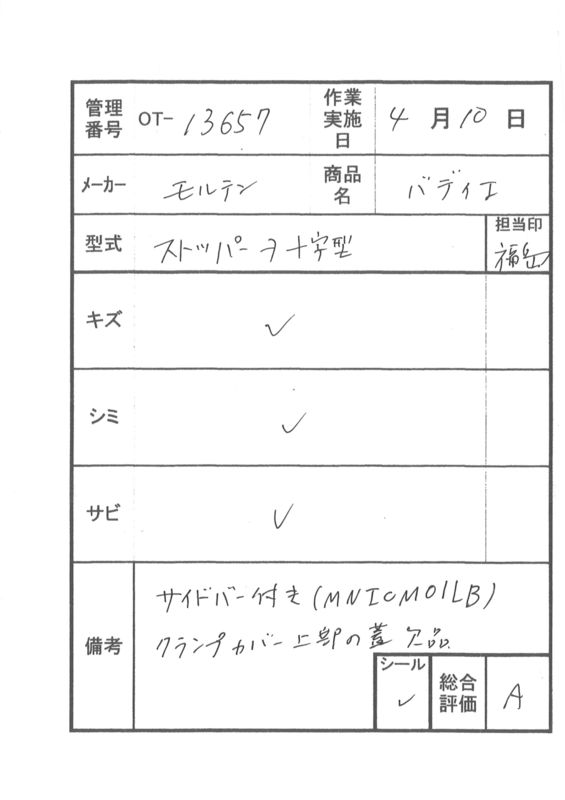 管理番号 OT-13657 作業実施日 4月10日
メーカー モルテン 商品名 バディエ
型式 ストッパーヲ十字型 担当印 福岳
キズ ✓
シミ ✓
サビ ✓
備考 サイドバー付き(MNICM01LB)
クランプカバー上部の蓋 欠品
シール ✓ 総合評価 A